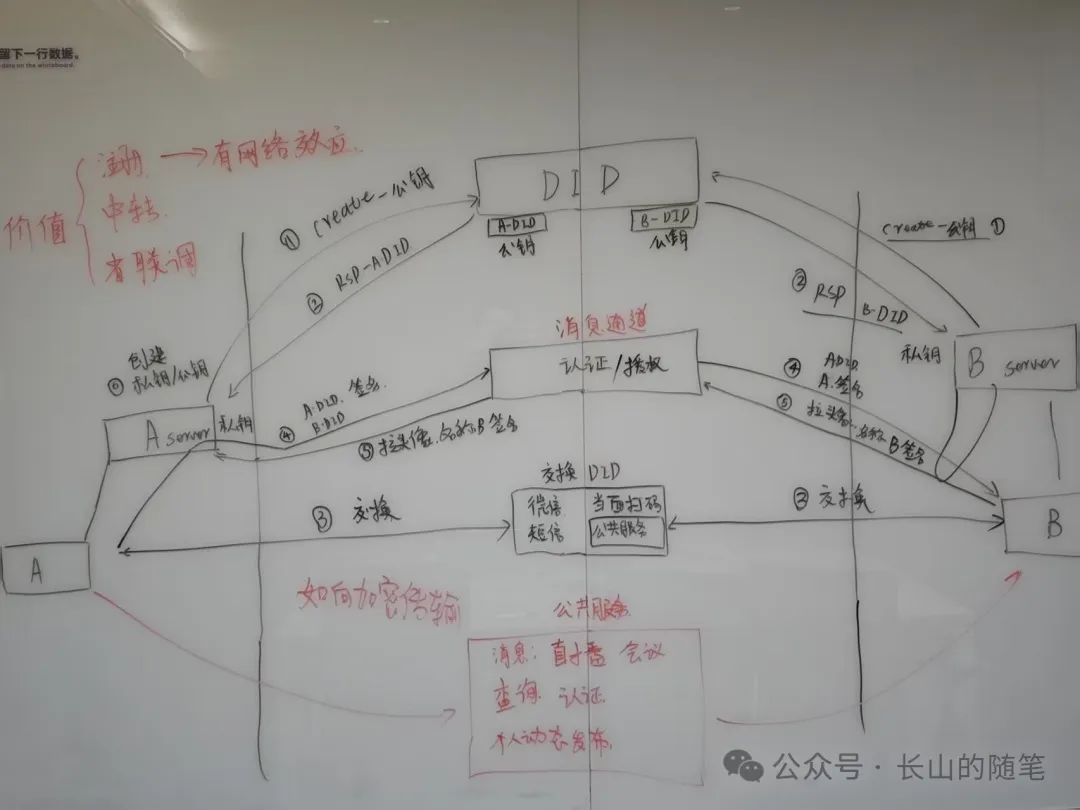 留下一行数据。
data on the whiteboard.
价值
注册 → 有网络效应.
中转.
省联调
① Create-公钥
② RSP-ADID
DID
A-DID
公钥
B-DID
公钥
Create-公钥 ①
② RSP B-DID
创建
⓪ 私钥/公钥
A server
私钥
消息通道
认证/授权
④ A-DID. 签名.
B-DID
⑤ 拉头像.名称B签名
④ ADID
A.签名
⑤ 拉头像.名称B签名
私钥
B server
交换 DID
微信 当面扫码
短信 公共服务
③ 交换
③ 交换
A
B
如何加密传输
公共服务
消息: 直播 会议
查询 认证.
个人动态发布.
公众号 · 长山的随笔